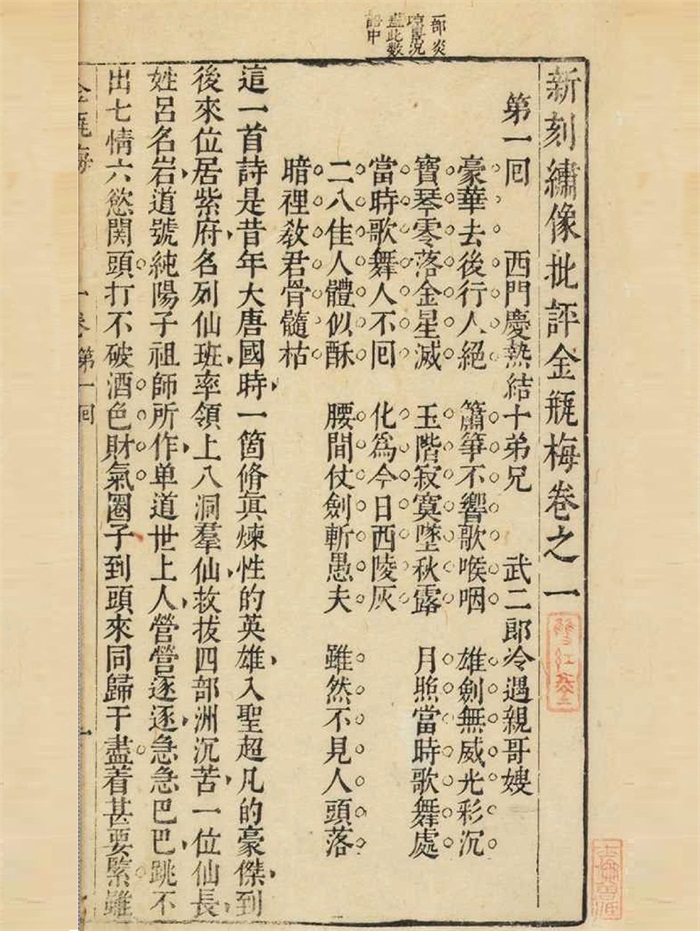 一部炎
凉景况
盡此數
語中
新刻繡像批評金瓶梅卷之一
第一回 西門慶熱結十弟兄 武二郎冷遇親哥嫂
豪華去後行人絕 簫箏不響歌喉咽 雄劍無威光彩沉
寶琴零落金星滅 玉階寂寞墜秋露 月照當時歌舞處
當時歌舞人不回 化爲今日西陵灰
二八佳人體似酥 腰間仗劍斬愚夫 雖然不見人頭落
暗裡教君骨髓枯
這一首詩是昔年大唐國時一箇脩眞煉性的英雄入聖超凡的豪傑到
後來位居紫府名列仙班率領上八洞羣仙救拔四部洲沉苦一位仙長
姓呂名岩道號純陽子祖師所作单道世上人營營逐逐急急巴巴跳不
出七情六慾関頭打不破酒色財氣圈子到頭來同歸于盡着甚要緊雖
金瓶梅 一卷第一回 一